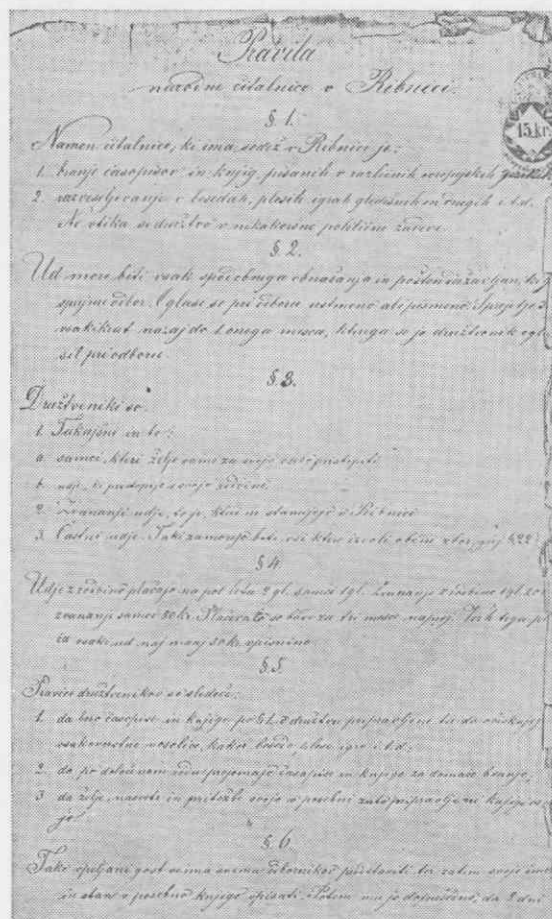 Pravila
narodne čitalnice v Ribnici.
§ 1.
Namen čitalnice, ki ima sedež v Ribnici je:
1. branje časopisov in knjig, pisanih v različnih evropejskih
2. razveseljevanje v besedah, plesih igrah gledišnih in drugih i. t. d.
Ne vtika se društvo v nikakoršne politične
§ 2.
Ud more biti vsak spodobnega obnašanja in
sprijme odbor. Oglasi se pri odboru ustmeno ali pismeno.
vsakikrat nazaj do 1. onega mesca, kterega se je društvenik
sil pri odboru.
§ 3.
Družtveniki so:
1. Takajšni in to:
a. samci, kteri žele sami za svojo osebo pristopiti
b. udje, ki pristopijo s svojo
2. Zvunanji udje, to je, kteri ne stanujejo v Ribnici
3. Častni udje. Taki zamorejo biti, vsi ktere izvoli občni zbor, §22
§ 4
Udje z rodbino plačajo na pol leta 2 gl. samci 1 gl. Zvunanji z rodbino 1 gl.
zvunanji samec 50 kr. Plačevalo se bode za tri mesce naprej. Verh tega
vsaki ud naj manj 50 kr. vpisnine
§ 5.
Pravice družtvenikov so sledeče:
1. da bero časopise in knjige po § 1. v družtvu pripravljene ter da
vsakoverstne veselice, kakor besede, plese igre i. t. d.;
2. da po določenem redu prejemajo časopise in knjige za domače branje,
3. da želje, nasvete in pritožbe svoje v posebni zato pripravljeni knjigi
jo
§ 6.
Tako vpeljani gost se ima odbornikov predstaviti ter zatim svoje ime
in stan v posebno knjigo vpisati. Potem mu je dopuščeno, da 2 dni
15 kr.